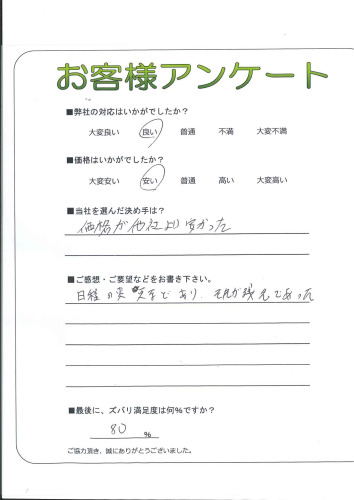 お客様アンケート
■弊社の対応はいかがでしたか?
大変良い 良い 普通 不満 大変不満
■価格はいかがでしたか?
大変安い 安い 普通 高い 大変高い
■当社を選んだ決め手は?
価格が他社より安かった
■ご感想・ご要望などをお書き下さい。
であり、それが残念であった
■最後に、ズバリ満足度は何%ですか?
80 %
ご協力頂き、誠にありがとうございました。